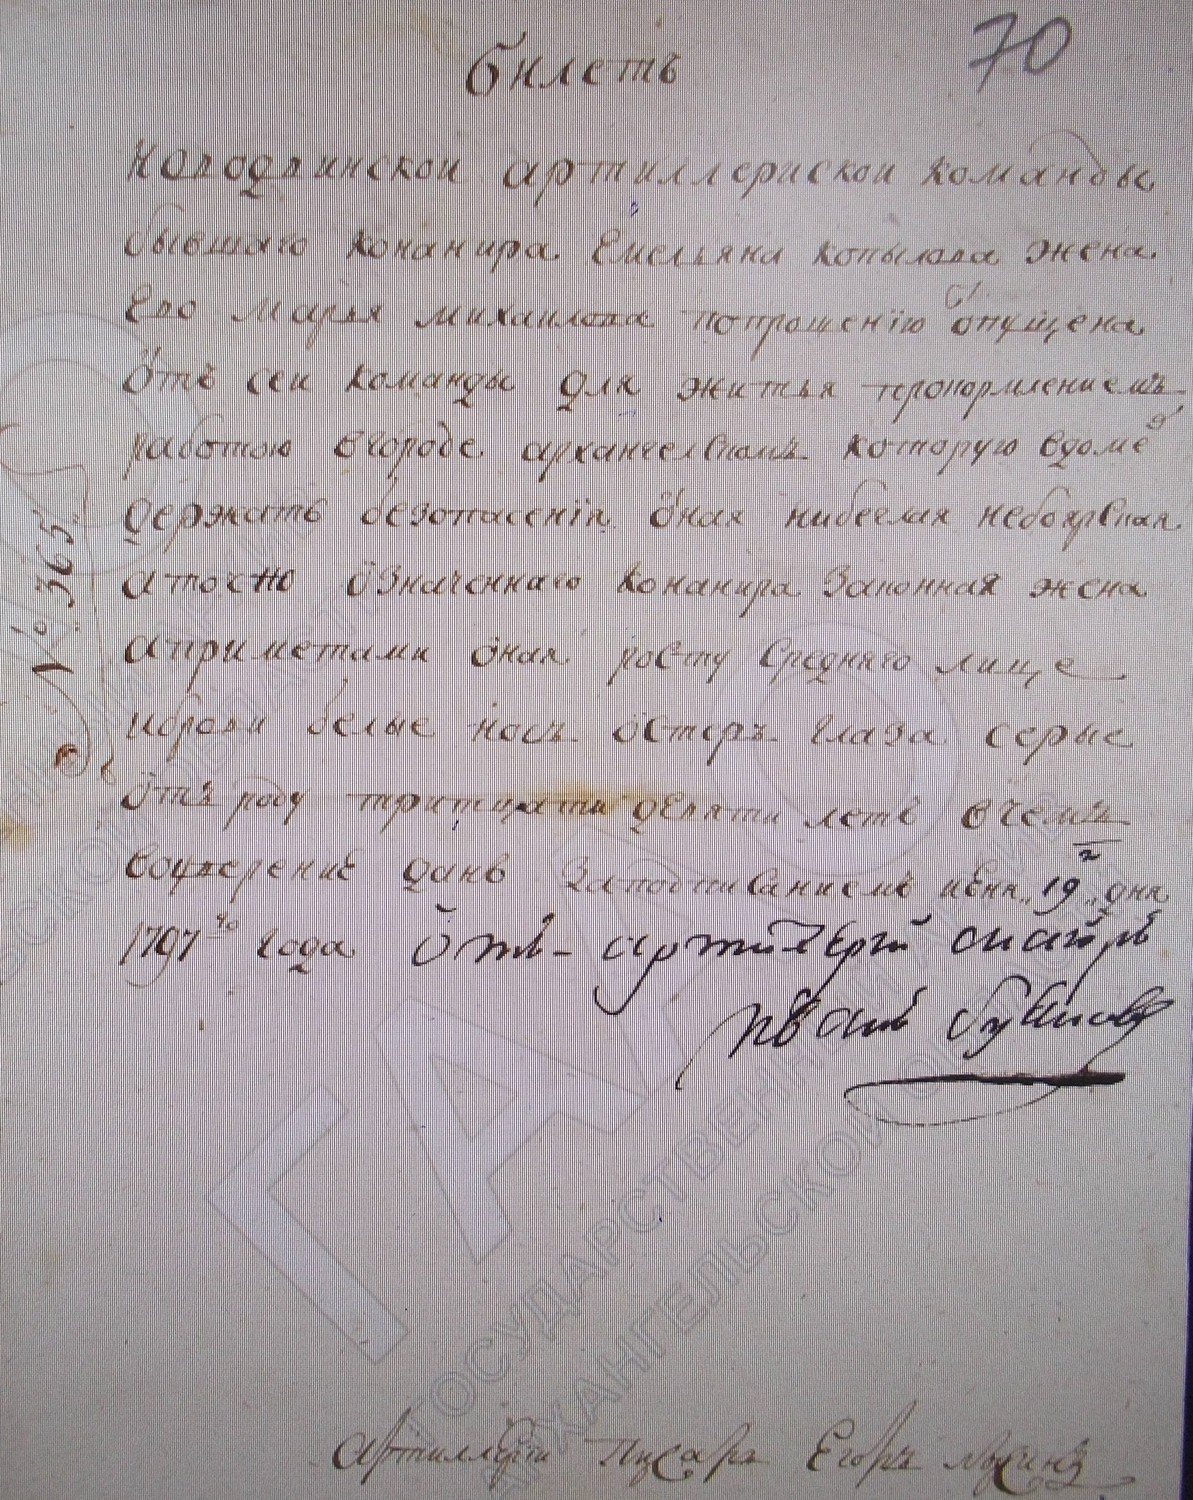 70
билетъ
Новодвинской артиллериской команды
бывшаго конанира Емельяна копылова жена
Ево Марья михаилова попрошенїю отпущена
Отъ сеи команды для житья ипрокормлениемъ
работою вгороде архангелскомъ которую вдоме
держать безопасенїя оная нибеглая небоярская
а точно означеннаго конанира законная жена
априметами оная росту средняго лице
иброви белые носъ остеръ глаза серые
отъ роду тритцати девяти летъ вчемъ
воуверение данъ Заподписаниемъ июня 19 дня
1797 го года Отъ артиллерїи
№ 365
Артиллерїи Писарь Егоръ
ГААО
ГОСУДАРСТВЕННЫЙ АРХИВ
АРХАНГЕЛЬСКОЙ ОБЛАСТИ